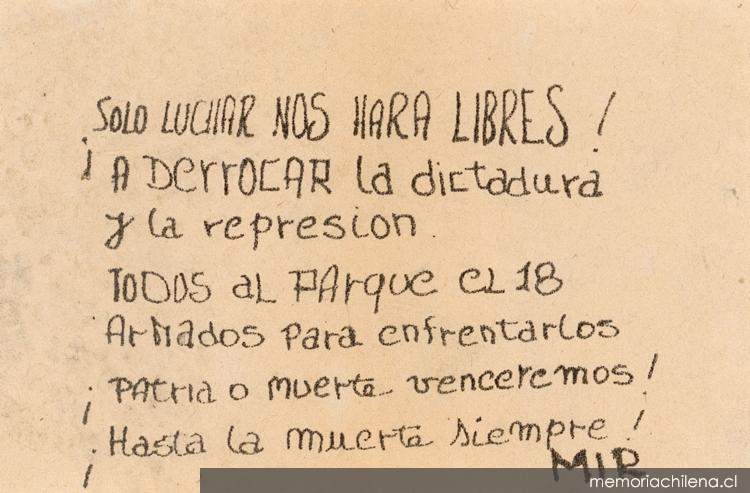 SOLO LUCHAR NOS HARA LIBRES !
¡ A DerrOCAR la dictadura
y la represion.
TODOS aL PArque eL 18
ArMados para enfrentarlos
¡ PAtria o muerte venceremos !
¡ Hasta la muerte siempre !
MIR
memoriachilena.cl